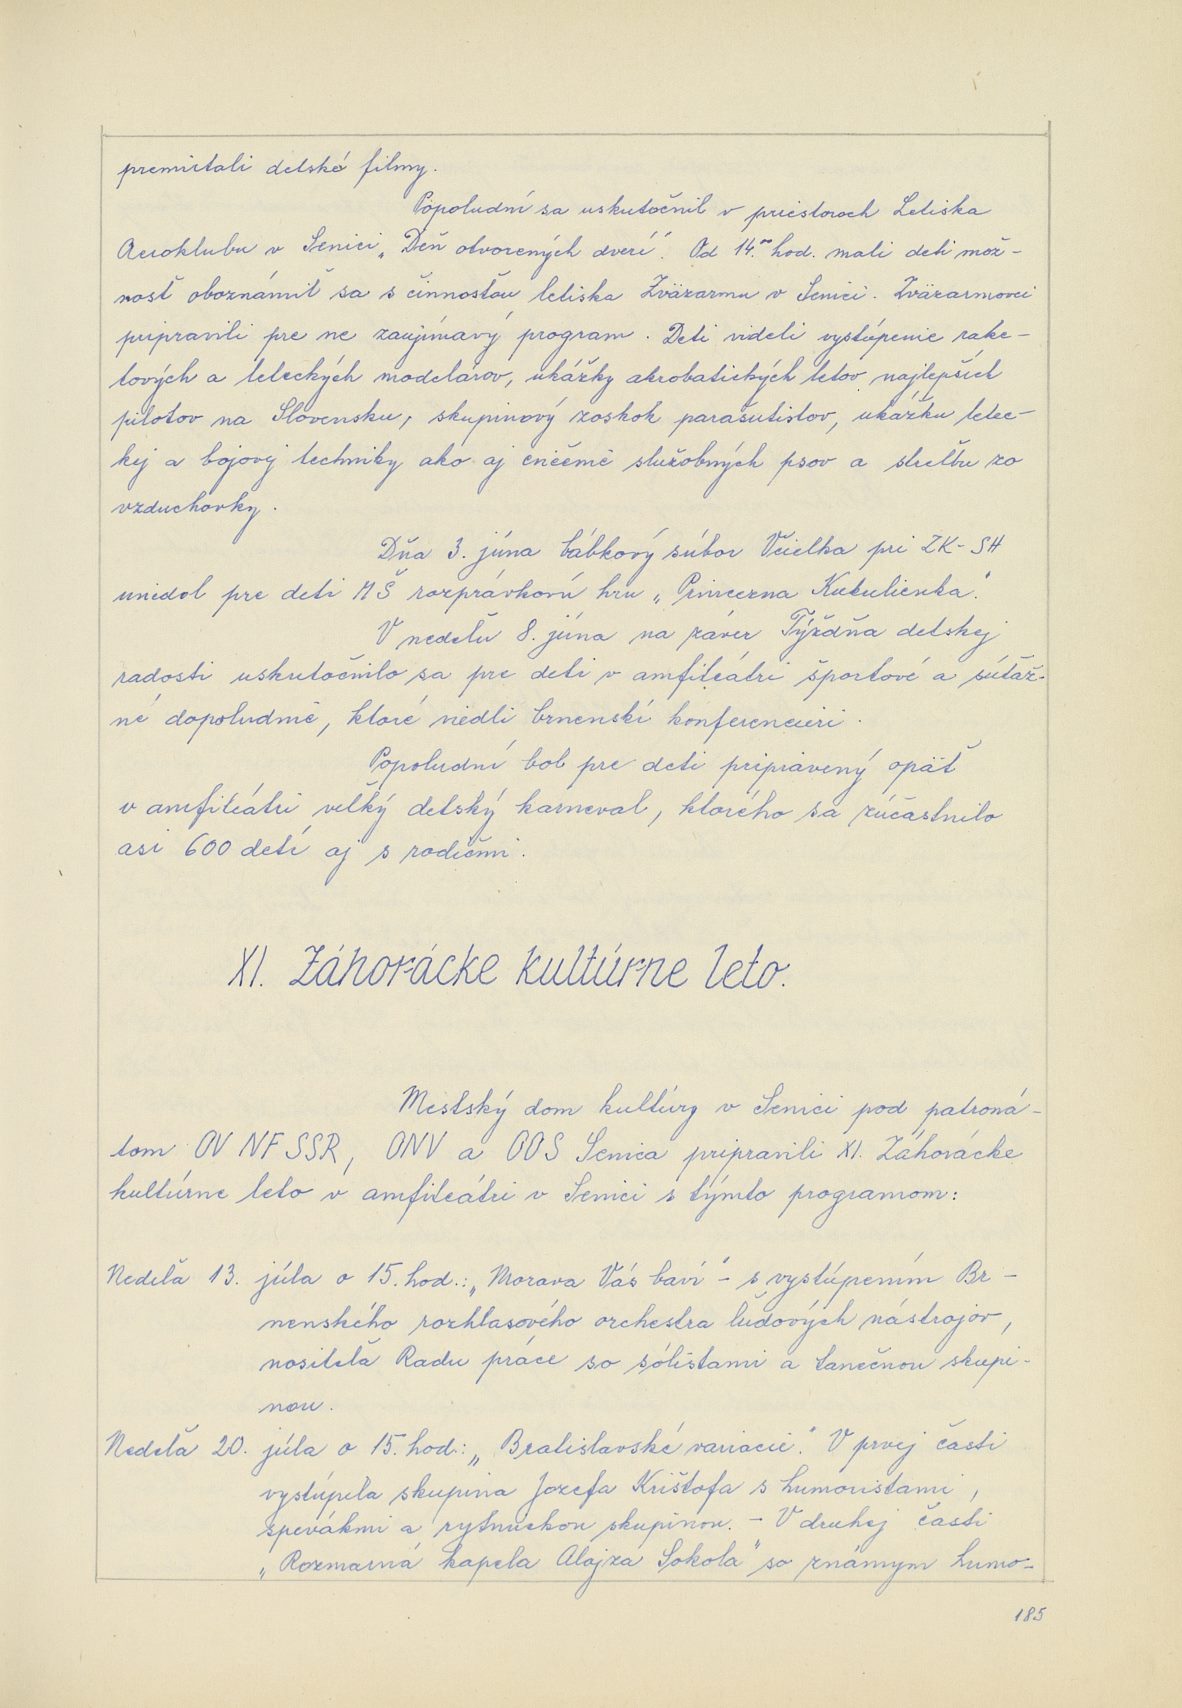 premietali detské filmy.
Popoludní sa uskutočnil v priestoroch Letiska
Aeroklubu v Senici „Deň otvorených dverí". Od 14.00 hod. mali deti mož-
nosť oboznámiť sa s činnosťou letiska Zväzarmu v Senici. Zväzarmovci
pripravili pre ne zaujímavý program. Deti videli vystúpenie rake-
tových a leteckých modelárov, ukážky akrobatických letov najlepších
pilotov na Slovensku, skupinový zoskok parašutistov, ukážku letec-
kej a bojovej techniky ako aj cvičenie služobných psov a streľbu zo
vzduchovky.
Dňa 3. júna bábkový súbor Včielka pri ZK-SH
uviedol pre deti MŠ rozprávkovú hru „Princezna Kukulienka".
V nedeľu 8. júna na záver Týždňa detskej
radosti uskutočnilo sa pre deti v amfiteátri športové a súťaž-
né dopoludnie, ktoré viedli brnenskí konferencieri.
Popoludní bol pre deti pripravený opäť
v amfiteátri veľký detský karneval, ktorého sa zúčastnilo
asi 600 detí aj s rodičmi.
XI. Záhorácke kultúrne leto.
Mestský dom kultúry v Senici pod patroná-
tom OV NF SSR, ONV a OOS Senica pripravili XI. Záhorácke
kultúrne leto v amfiteátri v Senici s týmto programom:
Nedeľa 13. júla o 15. hod.: „Morava Vás baví" - s vystúpením Br-
nenského rozhlasového orchestra ľudových nástrojov,
nositeľa Radu práce so sólistami a tanečnou skupi-
nou.
Nedeľa 20. júla o 15. hod.: „Bratislavské variacie." V prvej časti
vystúpila skupina Jozefa Krištofa s humoristami,
spevákmi a rytmickou skupinou. - V druhej časti
„Rozmarná kapela Alojza Sokola" so známym humo-
185